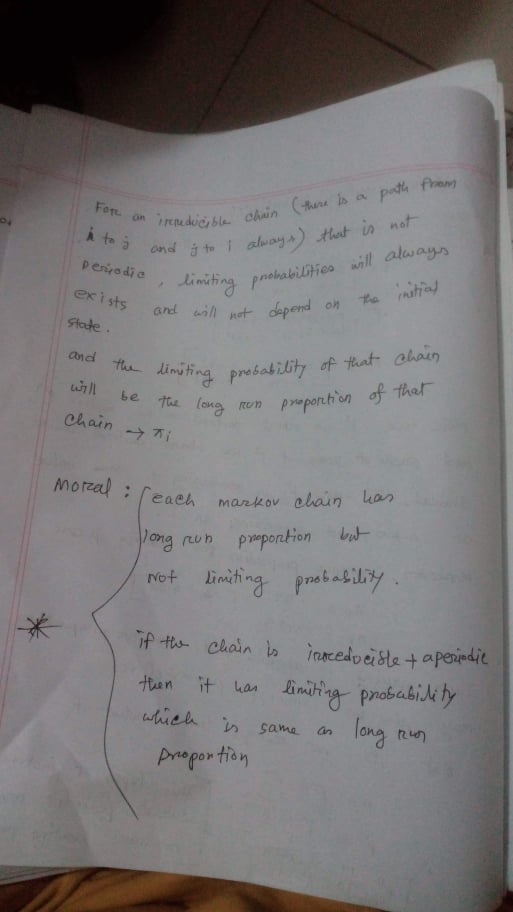 For an irreducible chain (there is a path from
i to j and j to i always) that is not
periodic, limiting probabilities will always
exists and will not depend on the initial
state.
and the limiting probability of that chain
will be the long run proportion of that
chain → πi
Moral : each markov chain has
long run proportion but
not limiting probability.
if the chain is irreducible + aperiodic
then it has limiting probability
which is same as long run
proportion